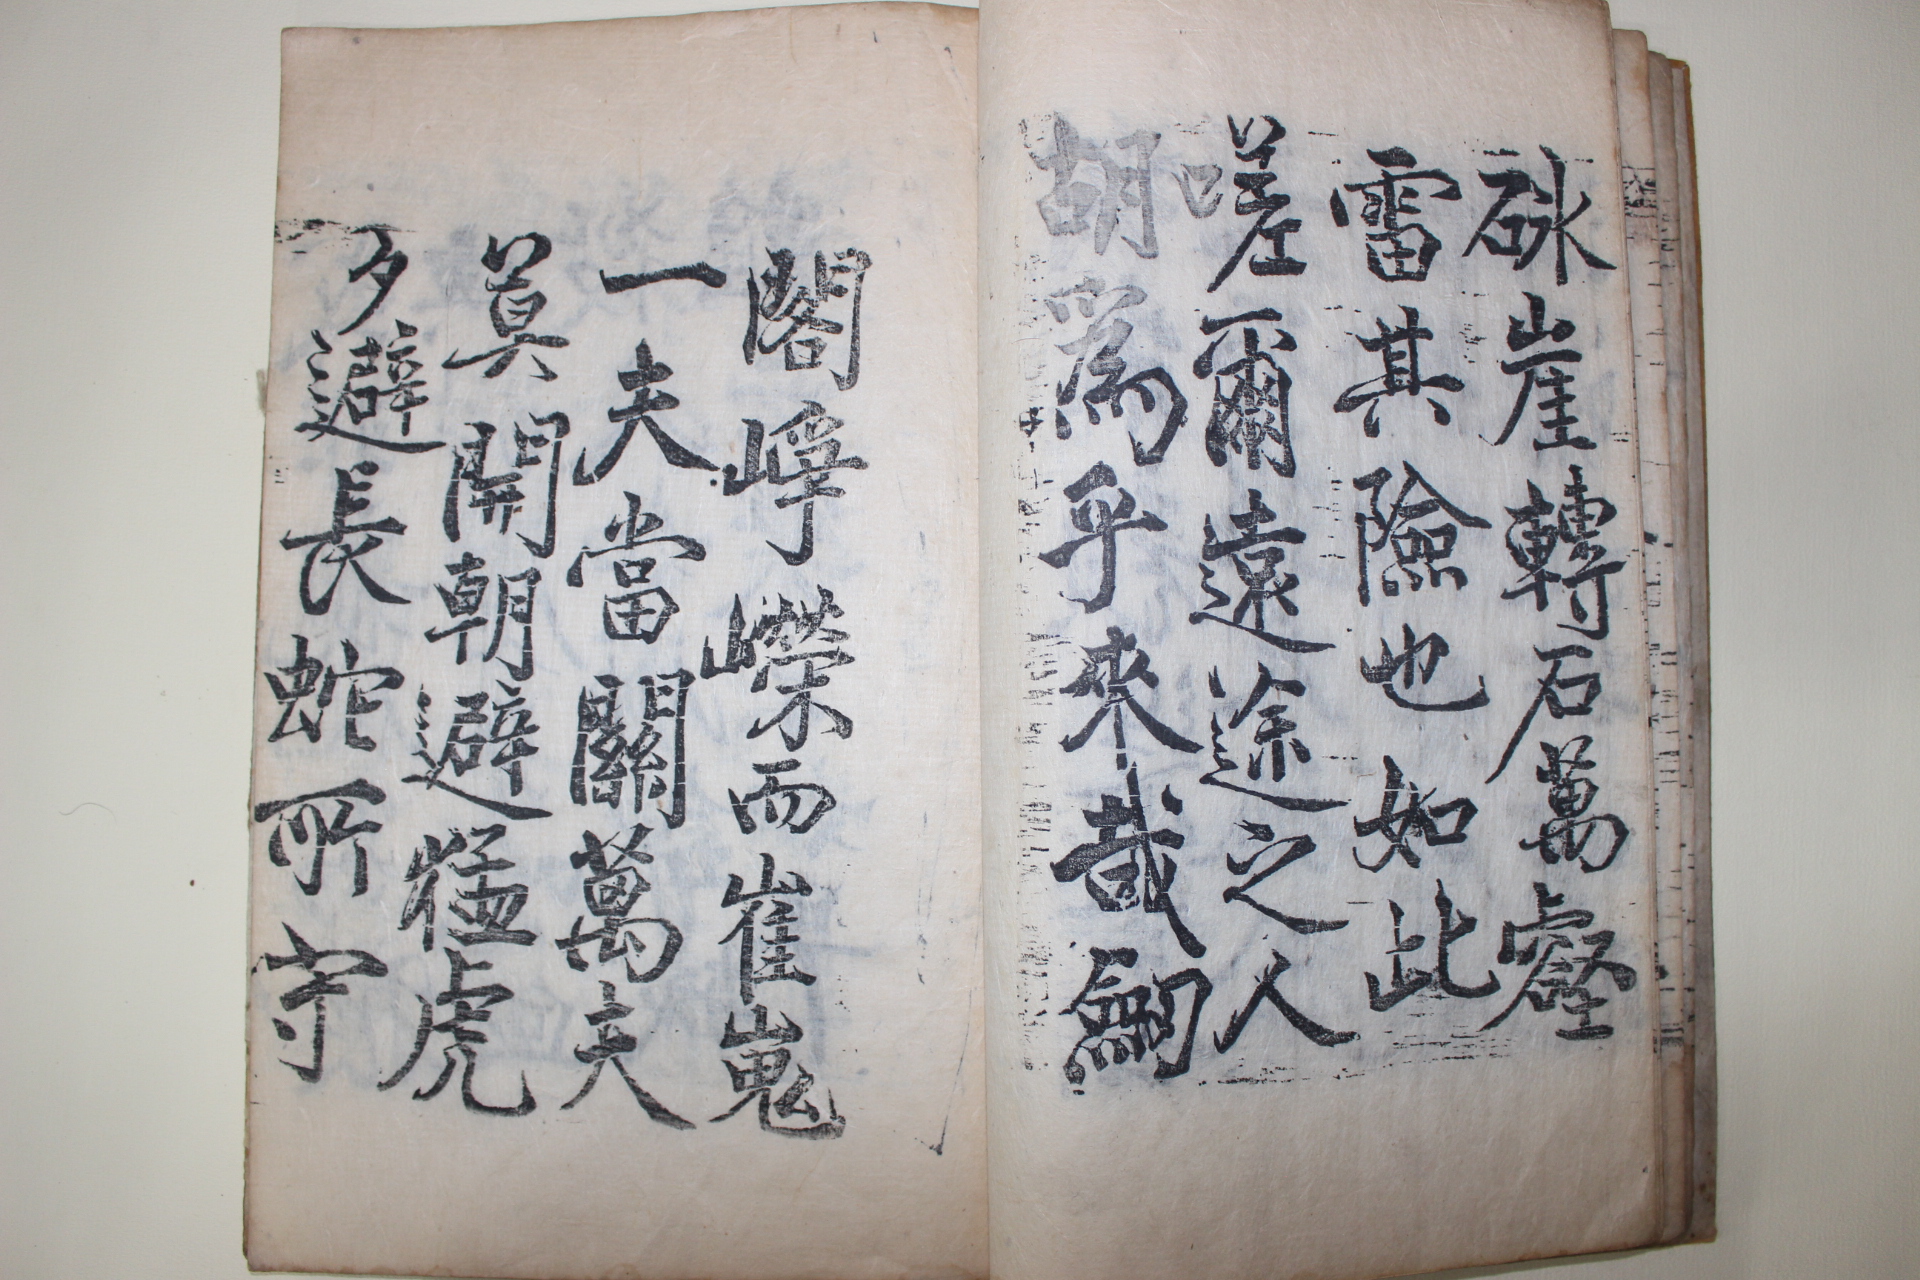 砯崖轉石萬壑
雷其險也如此
嗟爾遠途之人
胡爲乎來哉劒
閣崢嶸而崔嵬
一夫當關萬夫
莫開朝避猛虎
夕避長蛇所守